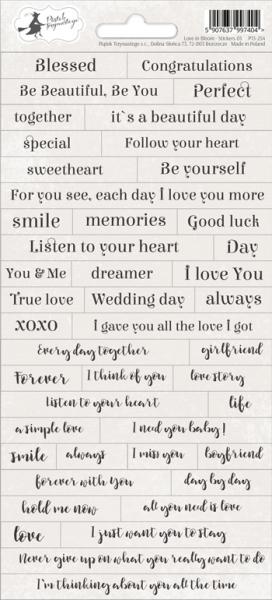 Piątek Trzynastego
5 907637 997404 >
Love in Bloom - Stickers 03 P13-254
Piątek Trzynastego s.c., Dolina Słońca 73, 72-003 Dobra Made in Poland
Blessed Congratulations
Be Beautiful, Be You Perfect
together it`s a beautiful day
special Follow your heart
sweetheart Be yourself
For you see, each day I love you more
smile memories Good luck
Listen to your heart Day
You & Me dreamer I love You
True love Wedding day always
XOXO I gave you all the love I got
Every day together girlfriend
Forever I think of you love story
listen to your heart life
a simple love I need you baby!
smile always I miss you boyfriend
forever with you day by day
hold me now all you need is love
love I just want you to stay
Never give up on what you really want to do
I'm thinking about you all the time